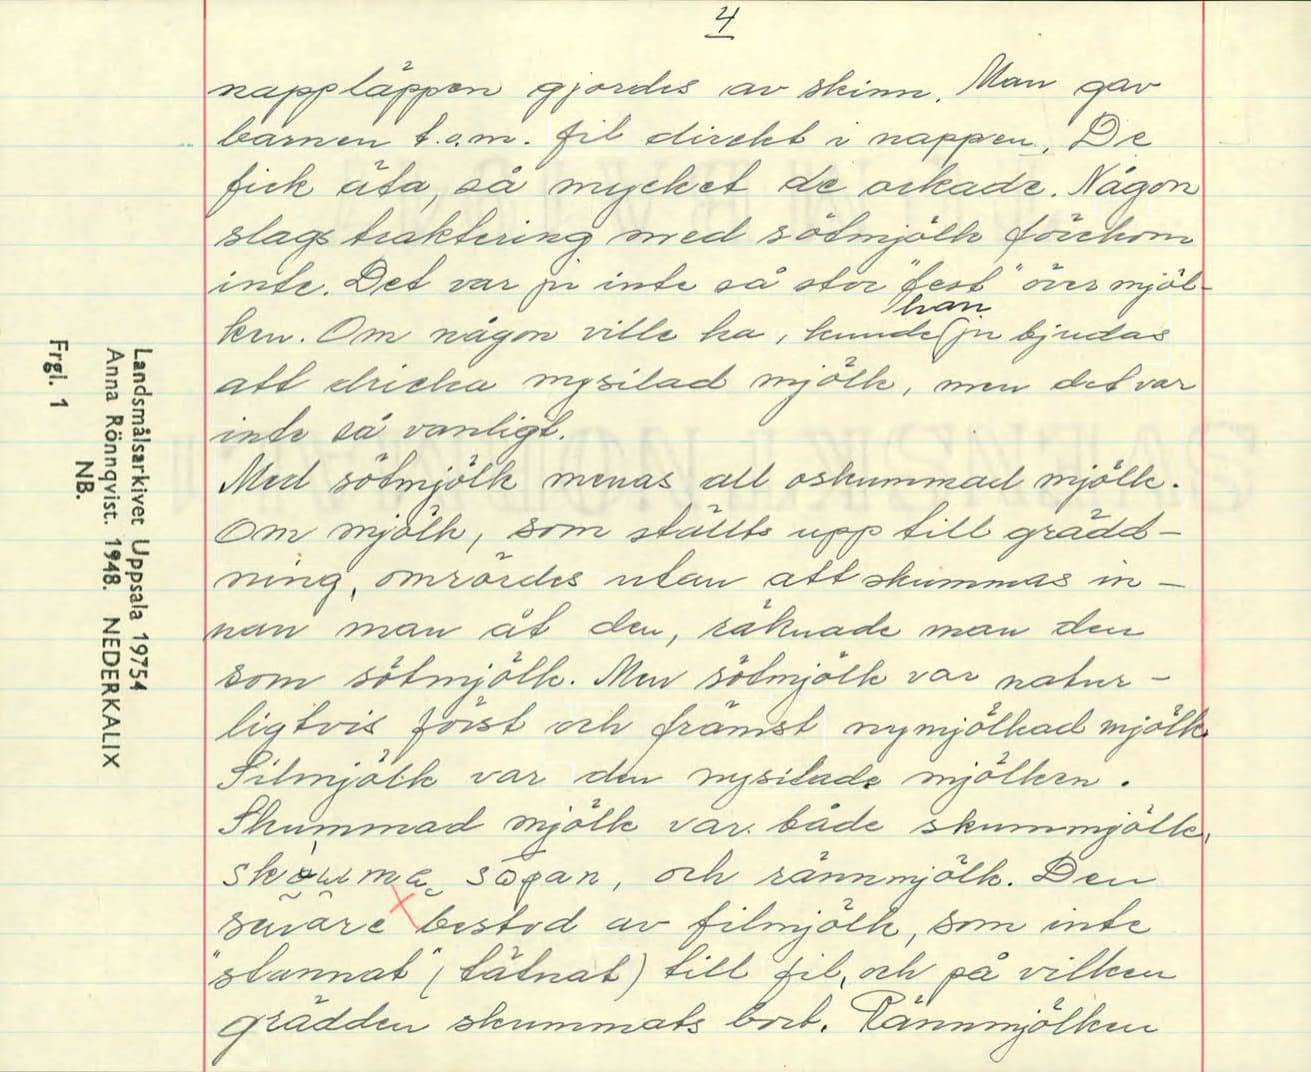 4
nappläppen gjordes av skinn. Man gav
barnen t.o.m. fil direkt i nappen. De
fick äta, så mycket de orkade. Någon
slags traktering med sötmjölk förekom
inte. Det var ju inte så stor "fest" över mjöl-
ken. Om någon ville ha, kunde han ju bjudas
att dricka nysilad mjölk, men det var
inte så vanligt.
Med sötmjölk menas all oskummad mjölk.
Om mjölk, som ställts upp till grädd-
ning, omrördes utan att skummas in-
nan man åt den, räknade man den
som sötmjölk. Men sötmjölk var natur-
ligtvis först och främst nymjölkad mjölk
Silmjölk var den nysilade mjölken.
Skummad mjölk var både skummjölk,
och rännmjölk. Den
senare bestod av filmjölk, som inte
"stannat" (tätnat) till fil, och på vilken
grädden skummats bort. Rännmjölken
Landsmålsarkivet Uppsala 19754
Anna Rönnqvist. 1948. NEDERKALIX
NB.
Frgl. 1